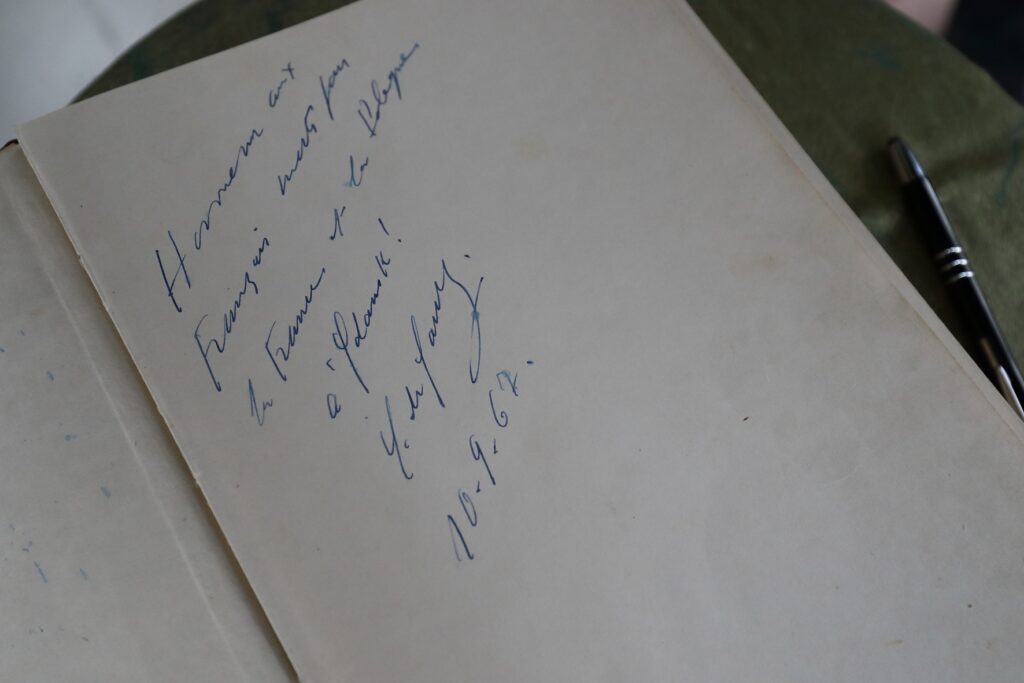 Honneur aux
Français morts pour
la France et la Pologne
à Gdansk !
C. de Gaulle.
10.9.67.